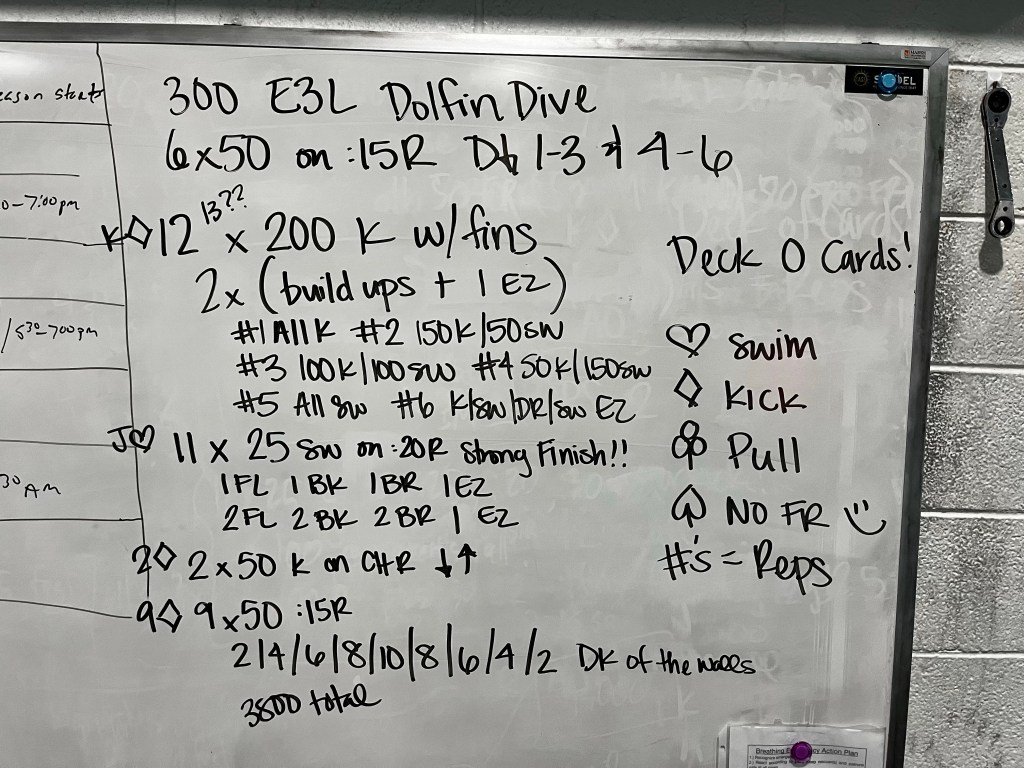 300 E3L Dolfin Dive
6x50 on :15R D↓ 1-3 + 4-6
K♢ 12 13?? x 200 K w/fins
2x (build ups + 1 EZ)
#1 All K #2 150K/50sw
#3 100K/100sw #4 50K/150sw
#5 All sw #6 K/sw/DR/sw EZ
J♡ 11 x 25 sw on :20R Strong Finish!!
1FL 1 BK 1BR 1EZ
2FL 2BK 2BR 1 EZ
2♢ 2x50 K on CH R ↓↑
9♢ 9x50 :15R
2/4/6/8/10/8/6/4/2 DK of the walls
3800 total
Deck O Cards!
♡ swim
♢ KICK
♧ Pull
♤ NO FR
#'s = Reps
0-7:00pm
/530-700pm
30 AM
Action Plan